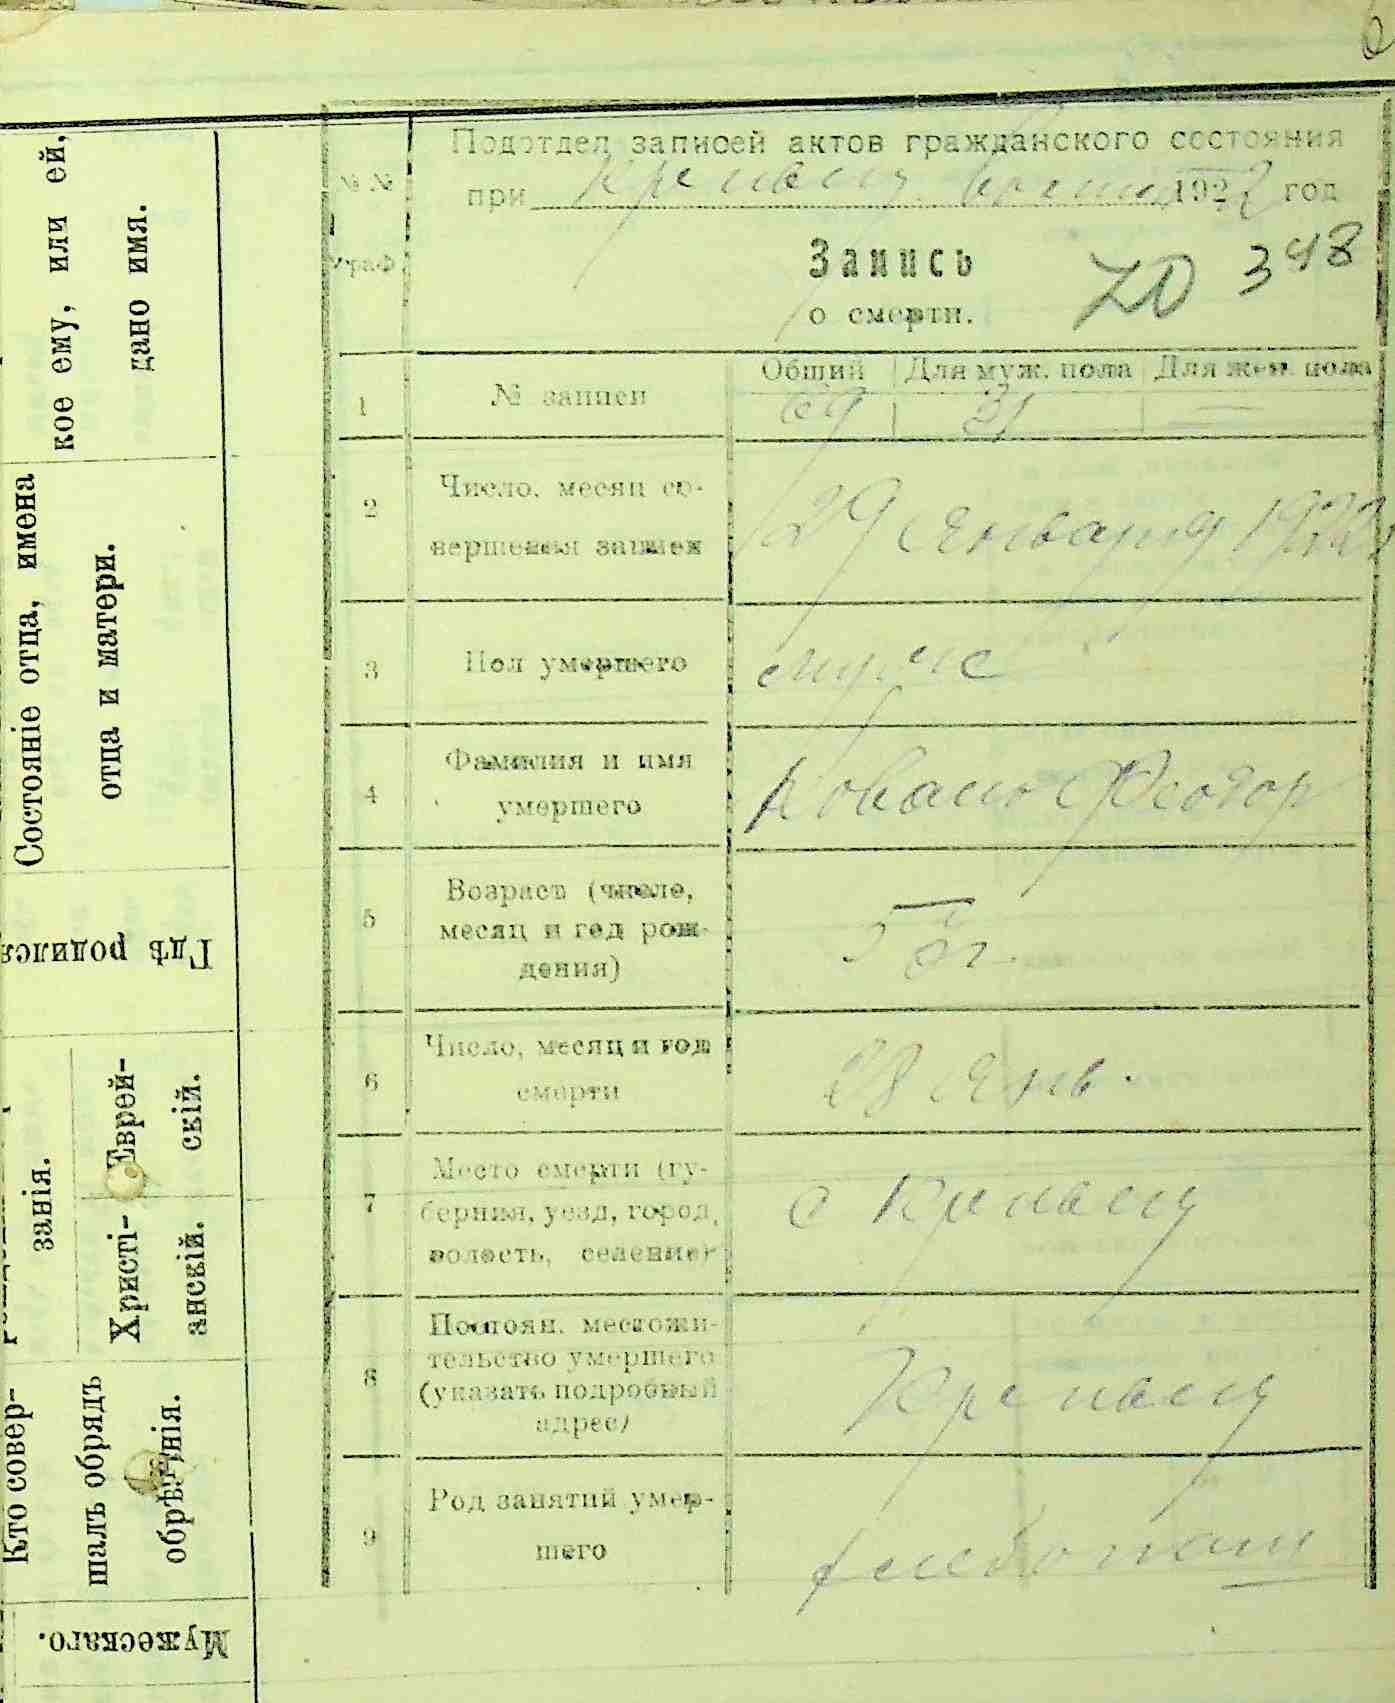 кое ему, или ей,
дано имя.
Состояніе отца, имена
отца и матери.
Гдѣ родился
Еврей-
скій.
занія.
Христі-
анскій.
Кто совер-
шалъ обрядъ
обрѣзанія.
Мужескаго.
Подотдел записей актов гражданского состояния
при 1922 год
№ №
граф
Запись
о смерти.
348
1 № записи
Общий Для муж. пола Для жен. пола
69 31 =
2 Число, месяц со-
вершения записи
29 Января 1922
3 Пол умершего
муж
4 Фамилия и имя
умершего
Феодор
5 Возраст (число,
месяц и год рож-
дения)
6 Число, месяц и год
смерти
28 Янв.
7 Место смерти (гу-
берния, уезд, город,
волость, селение)
с
8 Постоян. местожи-
тельство умершего
(указать подробный
адрес)
9 Род занятий умер-
шего
хлебопаш